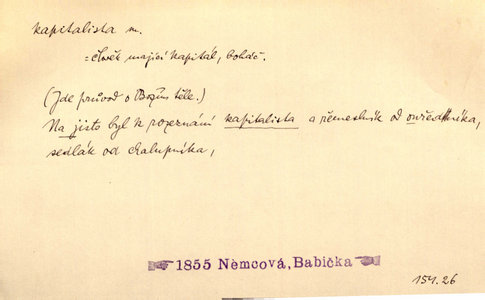 kapitalista m.
= člověk mající kapitál, boháč.
(Jde průvod o Božím těle.)
Na jisto byl k rozeznání kapitalista a řemeslník od ouředlníka,
sedlák od chalupníka,
☞ 1855 Němcová, Babička ☜
154.26